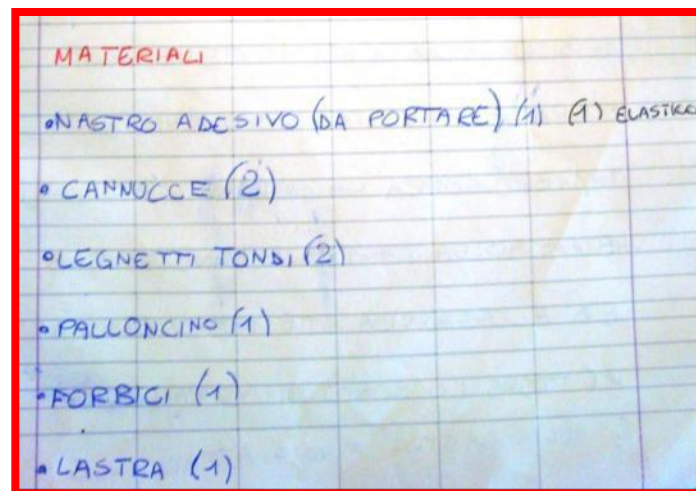 MATERIALI
•NASTRO ADESIVO (DA PORTARE) (1) (1) ELASTICO
• CANNUCCE (2)
•LEGNETTI TONDI (2)
• PALLONCINO (1)
•FORBICI (1)
• LASTRA (1)